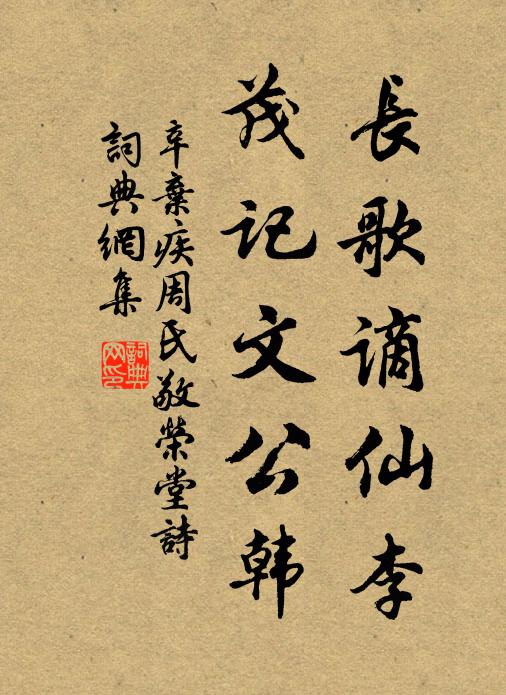 長歌谪仙李
茂记文公韩
辛棄疾周民敬榮堂詩
詞典網集
詞典
网印